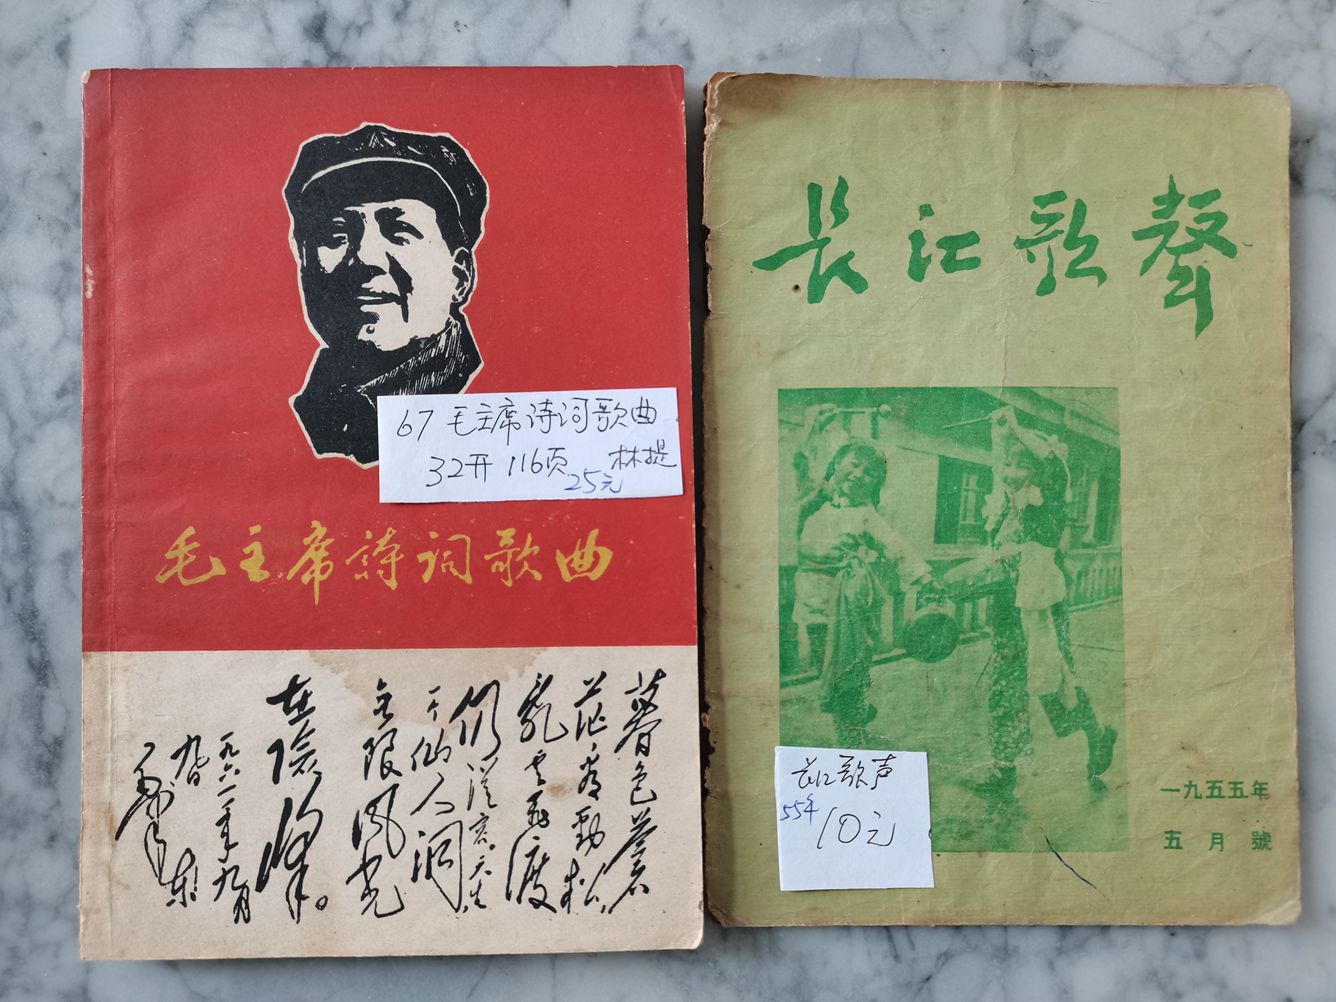 67 毛主席诗词歌曲
32开 116页 林提
25元
毛主席詩词歌曲
暮色蒼
茫看勁松
乱云飞渡
仍從容天生
一个仙人洞
无限风光
在險峰。
一九六一年九月
九日
毛澤东
长江歌聲
长江歌声
55年
10元
一九五五年
五月號